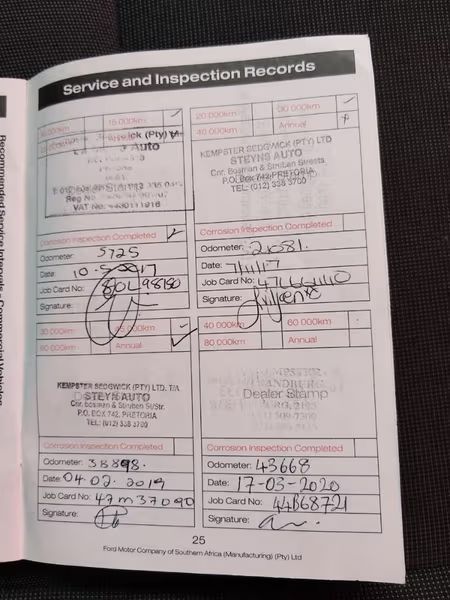 Service and Inspection Records
15 000km
Auto
VAT No:
Corrosion Inspection Completed
Odometer: 5725
Date:
Job Card No:
Signature:
20 000km 30 000km
40 000km Annual
KEMPSTER SEDGWICK (PTY) LTD
STEYNS AUTO
Cnr. Bosman & Struben Streets
P.O. Box 742, PRETORIA
TEL: (012) 338 3700
Corrosion Inspection Completed
Odometer: 21081.
Date: 7/11/17
Job Card No:
Signature:
30 000km 45 000km
60 000km Annual
KEMPSTER SEDGWICK (PTY) LTD. T/A
STEYNS AUTO
Cnr. Bosman & Struben St/Str.
P.O. BOX 742, PRETORIA
TEL: (012) 338 3700
Corrosion Inspection Completed
Odometer: 38898.
Date: 04.02.2019
Job Card No: 47m37090
Signature:
40 000km 60 000km
80 000km Annual
Dealer Stamp
Corrosion Inspection Completed
Odometer: 43668
Date: 17-03-2020
Job Card No: 44B68721
Signature:
25
Ford Motor Company of Southern Africa (Manufacturing) (Pty) Ltd
Recommended Service Intervals - Commercial Vehicles